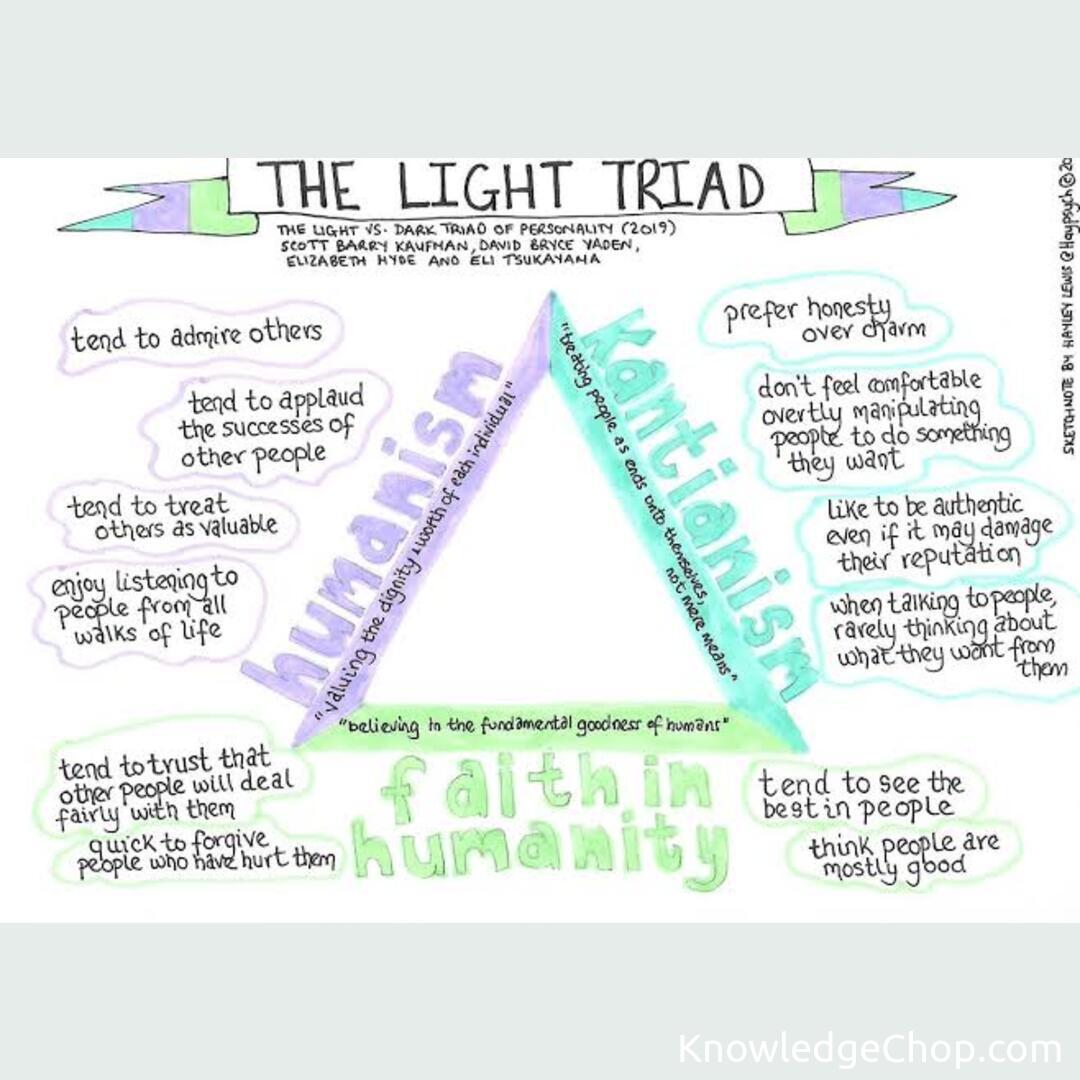 THE LIGHT TRIAD
THE LIGHT VS. DARK TRIAD OF PERSONALITY (2019)
SCOTT BARRY KAUFMAN, DAVID BRYCE YADEN,
ELIZABETH HYDE AND ELI TSUKAYAMA
SKETCHNOTE BY HAYLEY LEWIS @Haypsych © 20
tend to admire others
tend to applaud
the successes of
other people
tend to treat
others as valuable
enjoy listening to
people from all
walks of life
humanism
"valuing the dignity & worth of each individual"
Kantianism
"treating people as ends unto themselves,
not mere means"
prefer honesty
over charm
don't feel comfortable
overtly manipulating
people to do something
they want
like to be authentic
even if it may damage
their reputation
when talking to people,
rarely thinking about
what they want from
them
"believing in the fundamental goodness of humans"
faith in
humanity
tend to trust that
other people will deal
fairly with them
quick to forgive
people who have hurt them
tend to see the
best in people
think people are
mostly good
KnowledgeChop.com